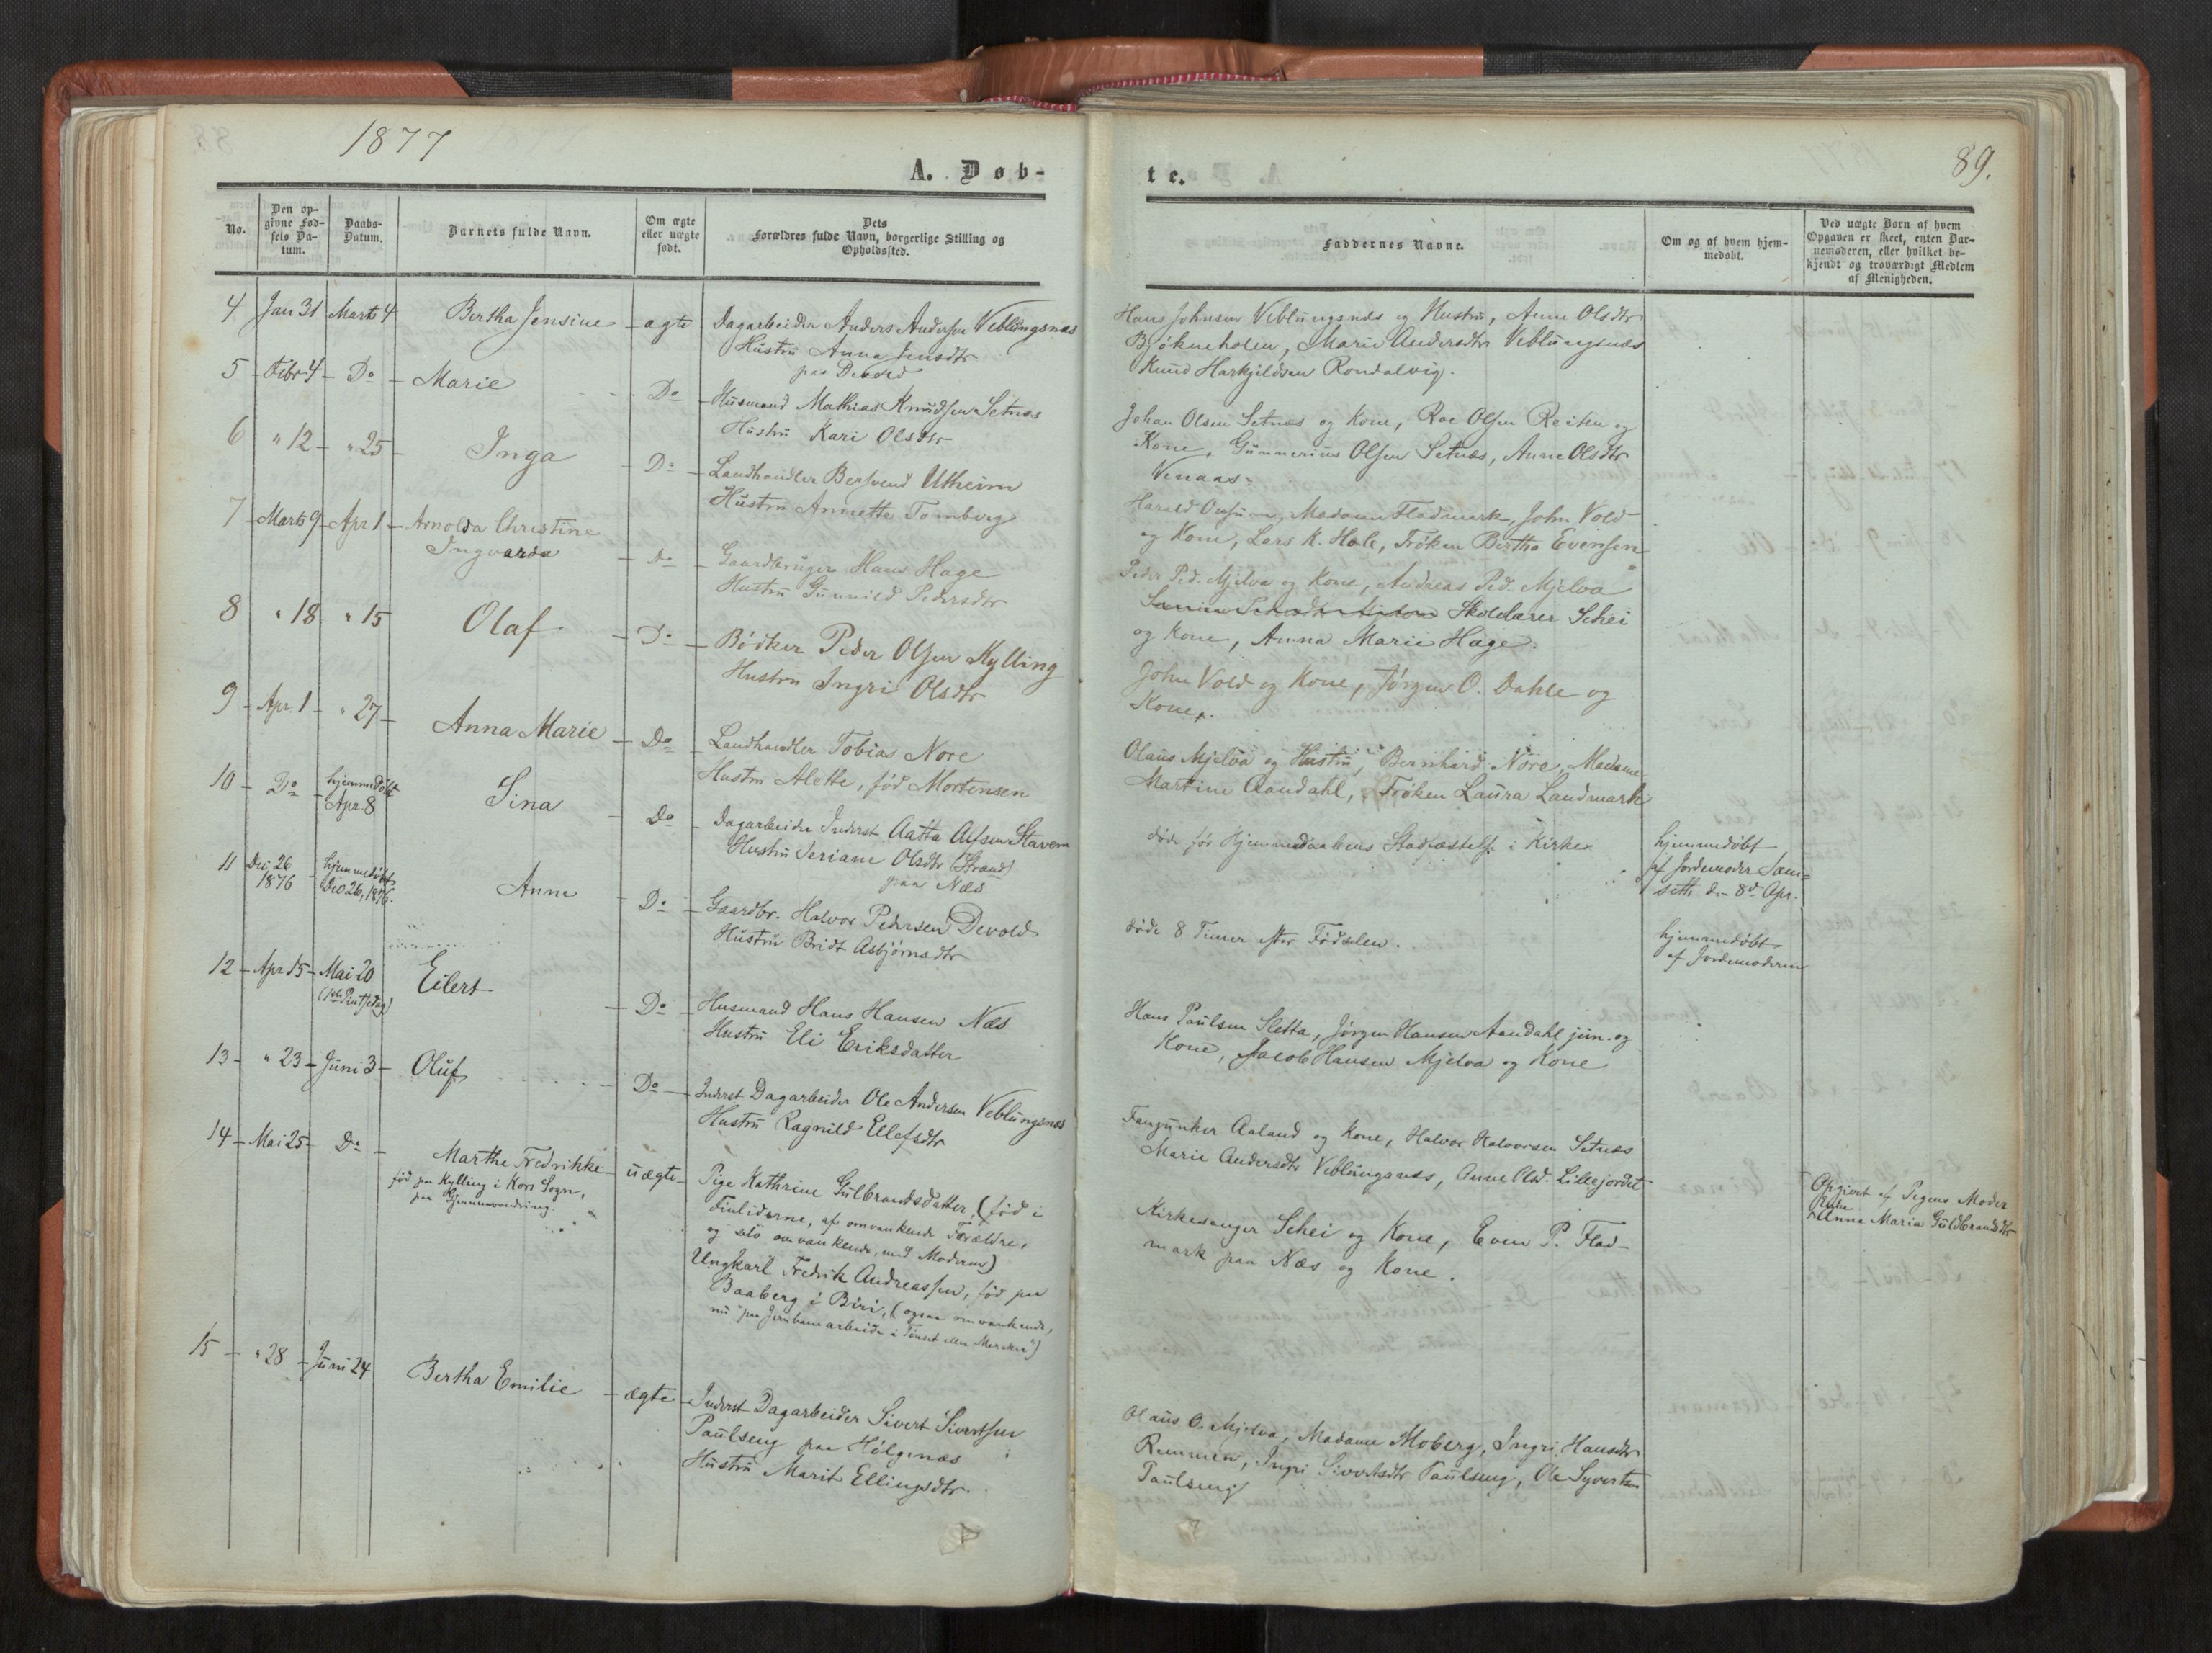 1877
A. Døb-
No.
Den op-
givne Fød-
sels Da-
tum.
Daabs-
Datum.
Barnets fulde Navn.
Om ægte
eller uægte
født.
Dets
Forældres fulde Navn, borgerlige Stilling og
Opholdssted.
4 Jan 31 Marts 4 Bertha Jensine ægte Dagarbeider Anders Andersen Veblungsnæs
Hustru Anna Jensdtr
paa Devold
5 Febr 4 Do Marie Do Husmand Mathias Knudsen Setnæs
Hustru Kari Olsdtr
6 " 12 " 25 Inga Do Landhandler Bersvend Utheim
Hustru Annette Tomberg
7 Marts 9 Apr 1 Arnolda Christine
Ingvarda Do Gaardbruger Hans Hage
Hustru Gunnild Pedersdtr
8 " 18 " 15 Olaf Do Bødker Peder Olsen Kylling
Hustru Ingri Olsdtr
9 Apr. 1 " 27 Anna Marie Do Landhandler Tobias Nore
Hustru Alette, fød Mortensen
10 Do hjemmedøbt
Apr. 8 Sina Do Dagarbeider Inderst Aatta Alfsen Stavem
Hustru Seriane Olsdtr (Strand)
paa Næs
11 Dec. 26
1876 hjemmedøbt
Dec 26, 1876. Anne Do Gaardbr. Halvor Pedersen Devold
Hustru Bridt Asbjørnsdtr
12 Apr 15 Mai 20
(1ste Pintsedag) Eilert Do Husmand Hans Hansen Næs
Hustru Eli Eriksdatter
13 " 23 Juni 3 Oluf Do Inderst Dagarbeider Ole Andersen Veblungsnæs
Hustru Ragnild Ellefsdtr
14 Mai 25 Do Marthe Fredrikke
fød paa Kylling i Kors Sogn,
paa Gjennemvandring. uægte Pige Kathrine Gulbrandsdatter, (fød i
Finliderne, af omvankende Forældre,
og selv omvankende, med Moderen)
Ungkarl Fredrik Andreassen, fød paa
Baaberg i Biri, (ogsaa omvankende,
nu "paa Jernbanearbeide i Tønset eller Meraker")
15 " 28 Juni 24 Bertha Emilie ægte Inderst Dagarbeider Sivert Sivertsen
Paulseng paa Holgenæs
Hustru Marit Ellingsdtr.
te.
89.
Faddernes Navne.
Om og af hvem hjem-
medøbt.
Ved uægte Børn af hvem
Opgaven er skeet, enten Bar-
nemoderen, eller hvilket be-
kjendt og troværdigt Medlem
af Menigheden.
Hans Johnsen Veblungsnæs og Hustru, Anne Olsdtr
Bjøkneholen, Marie Andersdtr Veblungsnæs
Knud Harkjeldsen Romdalvig.
Johan Olsen Setnæs og Kone, Roe Olsen Reiten og
Kone, Gunnerius Olsen Setnæs, Anne Olsdtr
Venaas.
Harald Madame Fladmark, John Vold
og Kone, Lars K. Hole, Frøken Bertha Evensen
Peder Ped. Mjelva og Kone, Andreas Ped. Mjelva
Skolelærer Schei
og Kone, Anna Marie Hage.
John Vold og Kone, Jørgen O. Dahle og
Kone.
Olaus Mjelva og Hustru, Bernhard Nore, Madame
Martine Aandahl, Frøken Laura Landmark
døde før Hjemmedaabens Stadfæstelse i Kirken
hjemmedøbt
af Jordemoder Sæm-
seth den 8de Apr.
døde 8 Timer efter Fødselen.
hjemmedøbt
af Jordemoderen
Hans Paulsen Sletta, Jørgen Hansen Aandahl jun. og
Kone, Jacob Hansen Mjelva og Kone
Fanejunker Aaland og Kone, Halvor Halvorsen Setnæs
Marie Andersdtr Veblungsnæs, Anne Olsd. Lillejordet
Kirkesanger Schei og Kone, Even P. Flad-
mark paa Næs og Kone.
Opgivet af Pigens Moder
Enke
Anna Maria Guldbrandsdtr
Olaus O. Mjelva, Madame Moberg, Ingri Hansdtr
Remmem, Ingri Sivertsdtr Paulseng, Ole Syvertsen
Paulseng